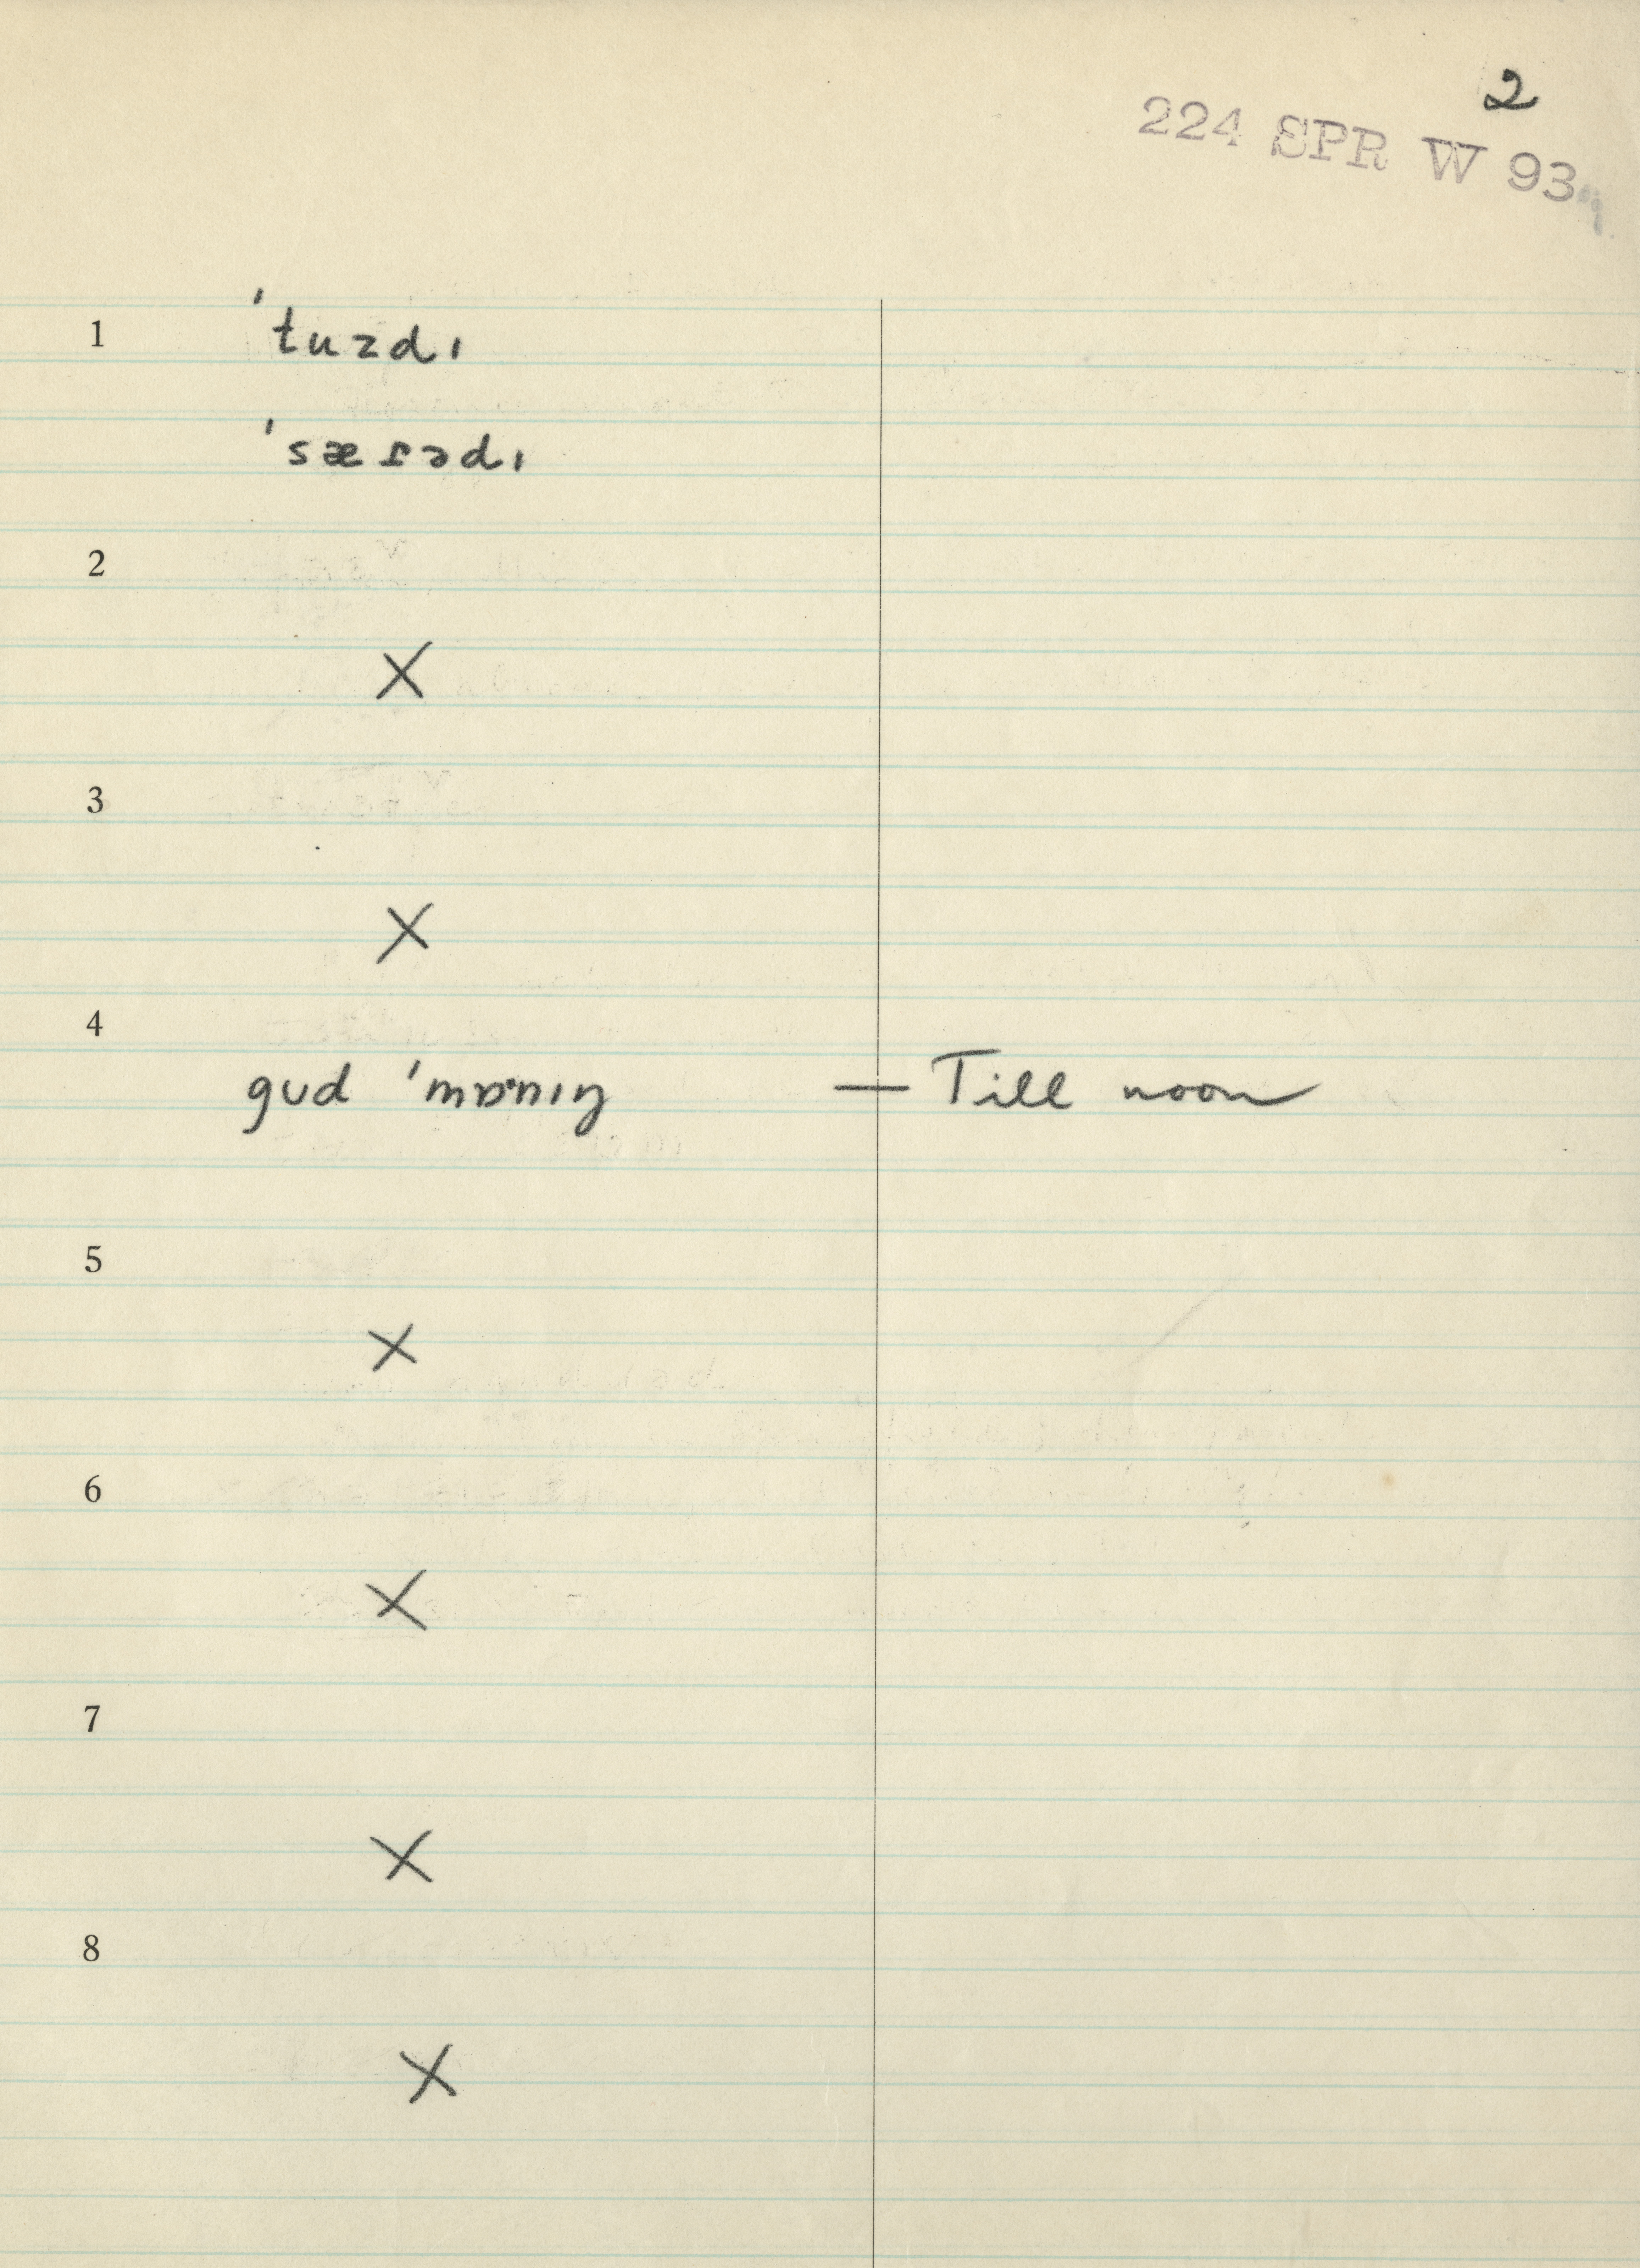 2
224 SPR W 93
1 ˈtuzdı
ˈsæɾədı
2
X
3
X
4
gud ˈmɒˑnıŋ — Till noon
5
X
6
X
7
X
8
X